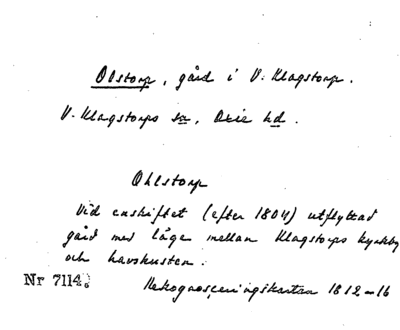 Olstorp, gård i V. Klagstorp.
V. Klagstorps sn, Oxie hd.
Ohlstorp
Vid enskiftet (efter 1804) utflyttad
gård med läge mellan Klagstorps kyrkby
och havskusten.
Nr 7114.
Rekognosceringskartan 1812-16